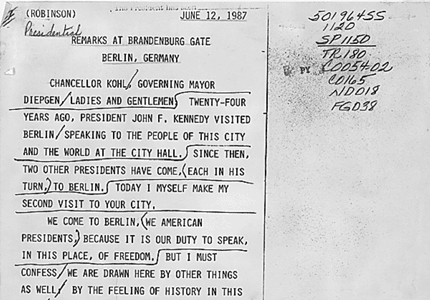 (ROBINSON)
JUNE 12, 1987
Presidential
REMARKS AT BRANDENBURG GATE
BERLIN, GERMANY
CHANCELLOR KOHL/ GOVERNING MAYOR
DIEPGEN/ LADIES AND GENTLEMEN/ TWENTY-FOUR
YEARS AGO, PRESIDENT JOHN F. KENNEDY VISITED
BERLIN/ SPEAKING TO THE PEOPLE OF THIS CITY
AND THE WORLD AT THE CITY HALL./ SINCE THEN,
TWO OTHER PRESIDENTS HAVE COME,(EACH IN HIS
TURN,)TO BERLIN./ TODAY I MYSELF MAKE MY
SECOND VISIT TO YOUR CITY.
WE COME TO BERLIN,(WE AMERICAN
PRESIDENTS,) BECAUSE IT IS OUR DUTY TO SPEAK,
IN THIS PLACE, OF FREEDOM./ BUT I MUST
CONFESS/ WE ARE DRAWN HERE BY OTHER THINGS
AS WELL/ BY THE FEELING OF HISTORY IN THIS
501964SS
1120
SP1150
TR180
CO054-02
CO165
ND018
FG038